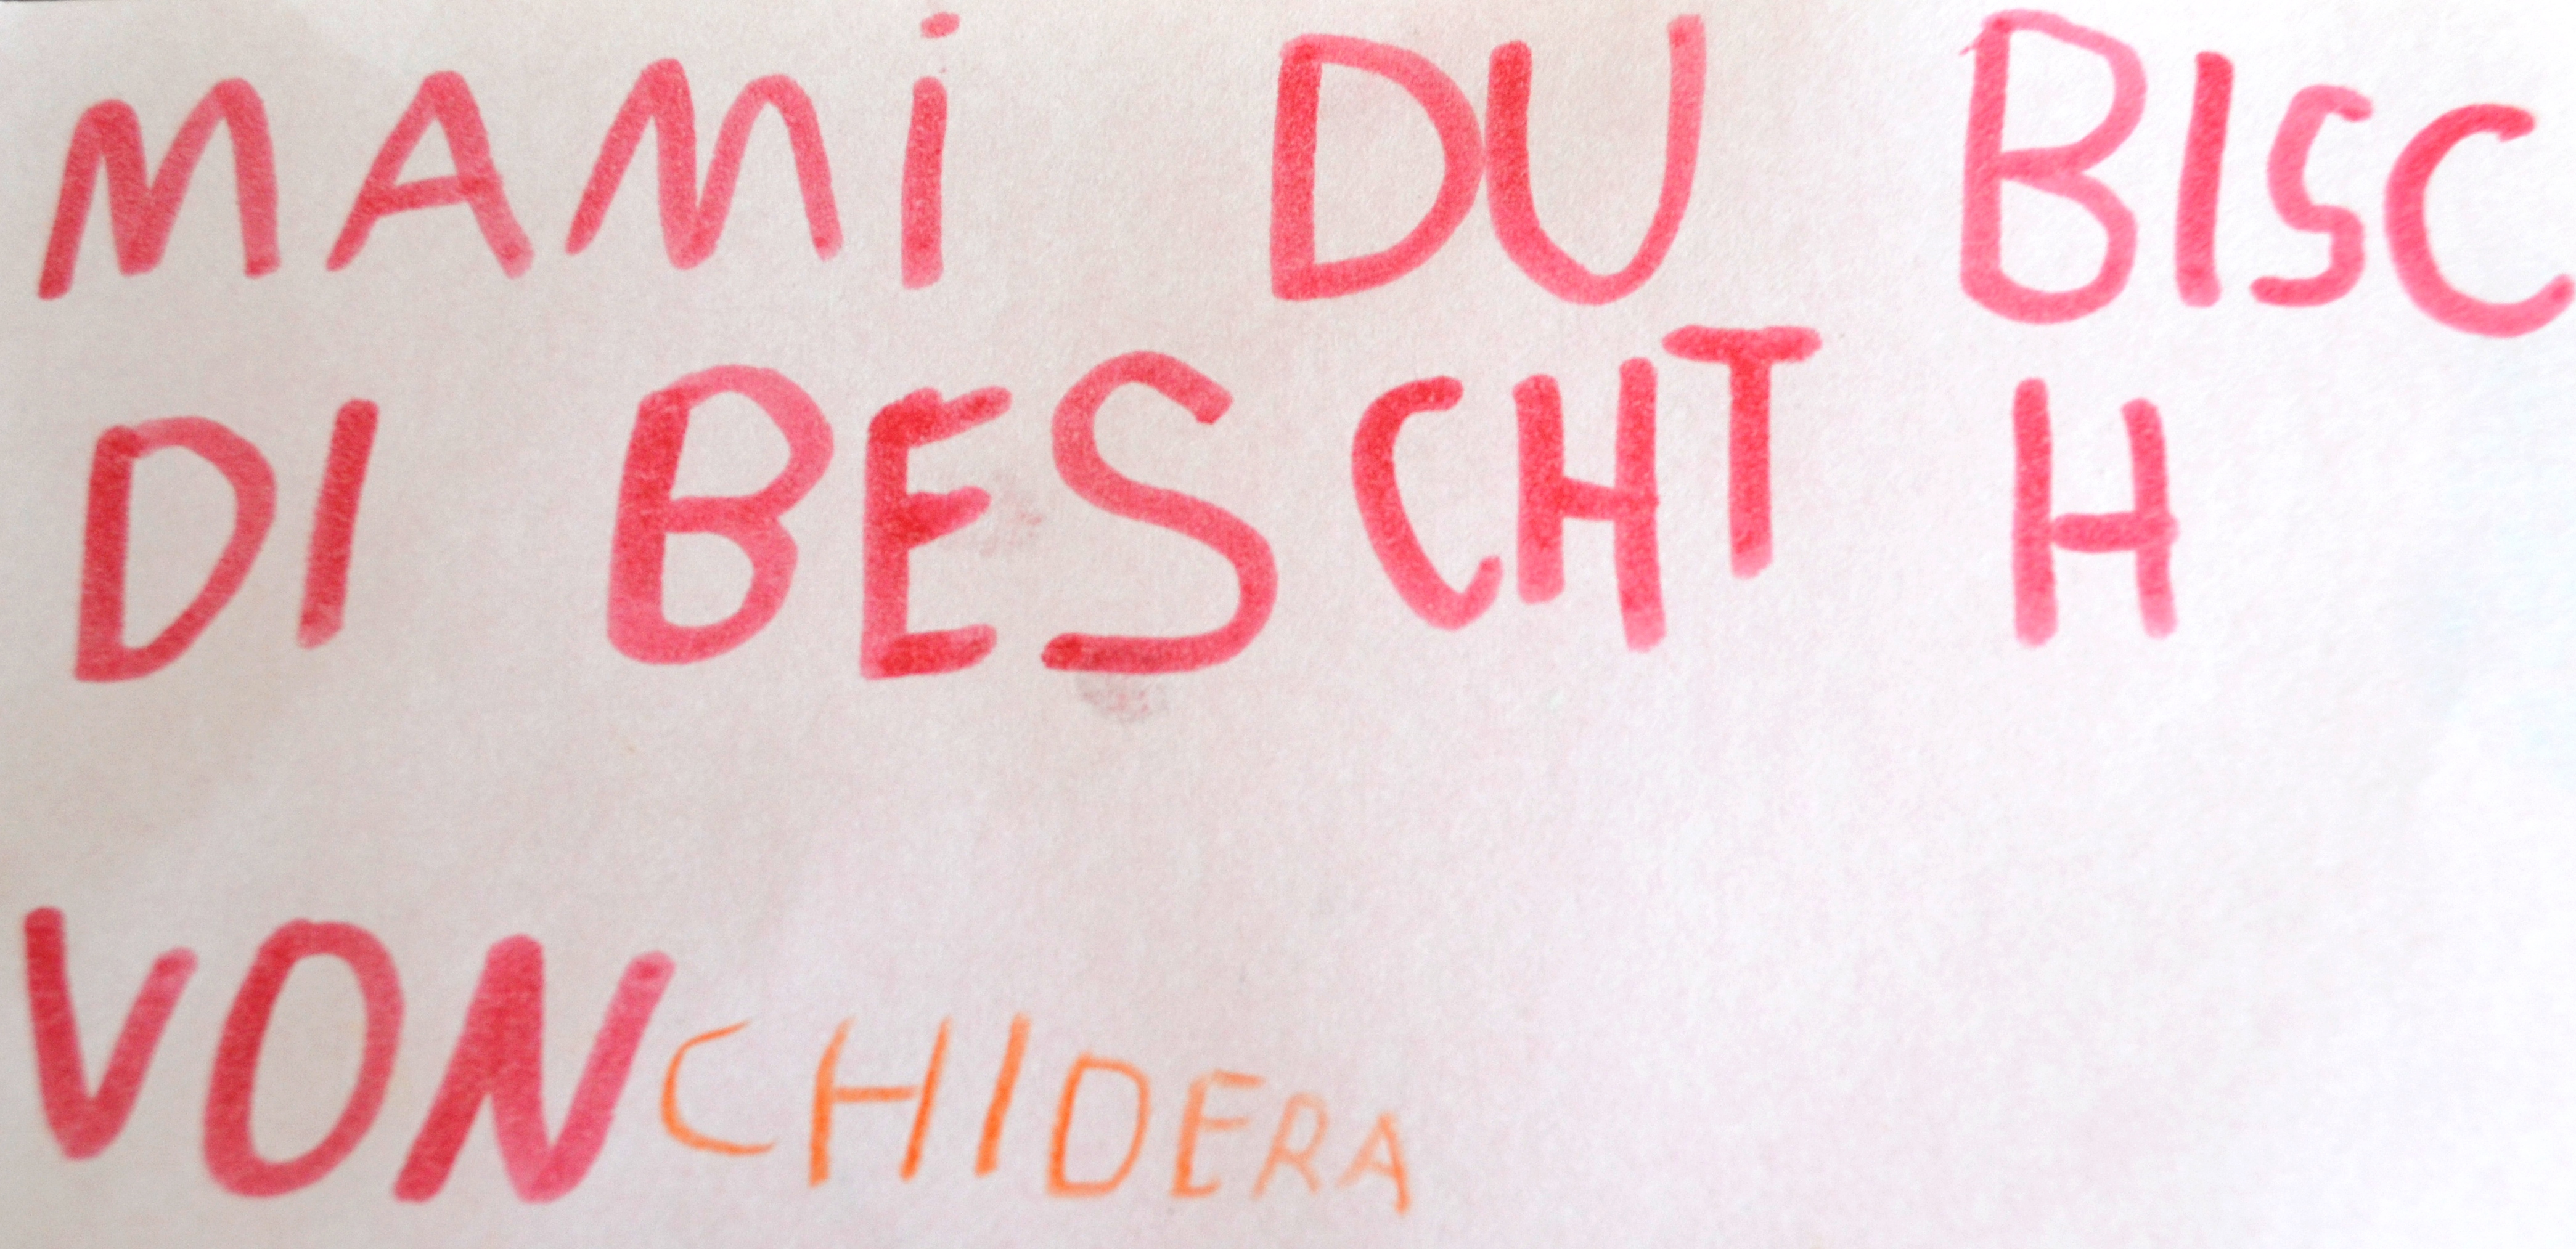 MAMi DU BISC
DI BESCHT H
VON CHIDERA